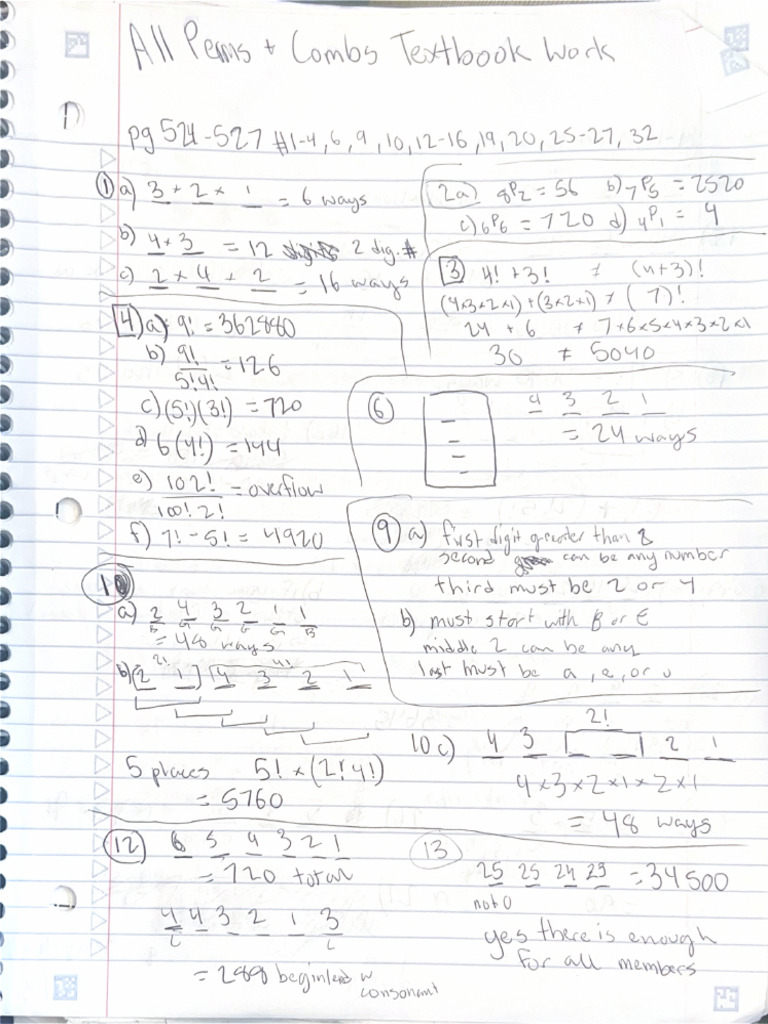 All Perms + Combs Textbook Work
1)
pg 524-527 #1-4, 6, 9, 10, 12-16, 19, 20, 25-27, 32
① a) 3 × 2 × 1 = 6 ways
b) 4 × 3 = 12 2 dig. #
c) 2 × 4 × 2 = 16 ways
2a) 8P2 = 56 b) 7P5 = 2520
c) 6P6 = 720 d) 4P1 = 4
3 4! + 3! ≠ (4+3)!
(4×3×2×1) + (3×2×1) ≠ (7)!
24 + 6 ≠ 7×6×5×4×3×2×1
30 ≠ 5040
4 a) 9! = 362880
b) 9!/5!4! = 126
c) (5!)(3!) = 720
d) 6(4!) = 144
e) 102!/100!2! = overflow
f) 7! - 5! = 4920
⑥ 4 3 2 1
= 24 ways
⑨ a) first digit greater than 2
second can be any number
third must be 2 or 4
b) must start with B or E
middle 2 can be any
last must be a, e, or u
10
a) 2 4 3 2 1 1
B G G G G B
= 48 ways
b) 2! 4!
2 1 4 3 2 1
5 places 5! × (2! 4!)
= 5760
10 c) 2!
4 3 2 1
4 × 3 × 2 × 1 × 2 × 1
= 48 ways
12 6 5 4 3 2 1
= 720 total
4 4 3 2 1 3
c c
= 288 w
consonant
13
25 25 24 23 = 34500
not 0
yes there is enough
for all members